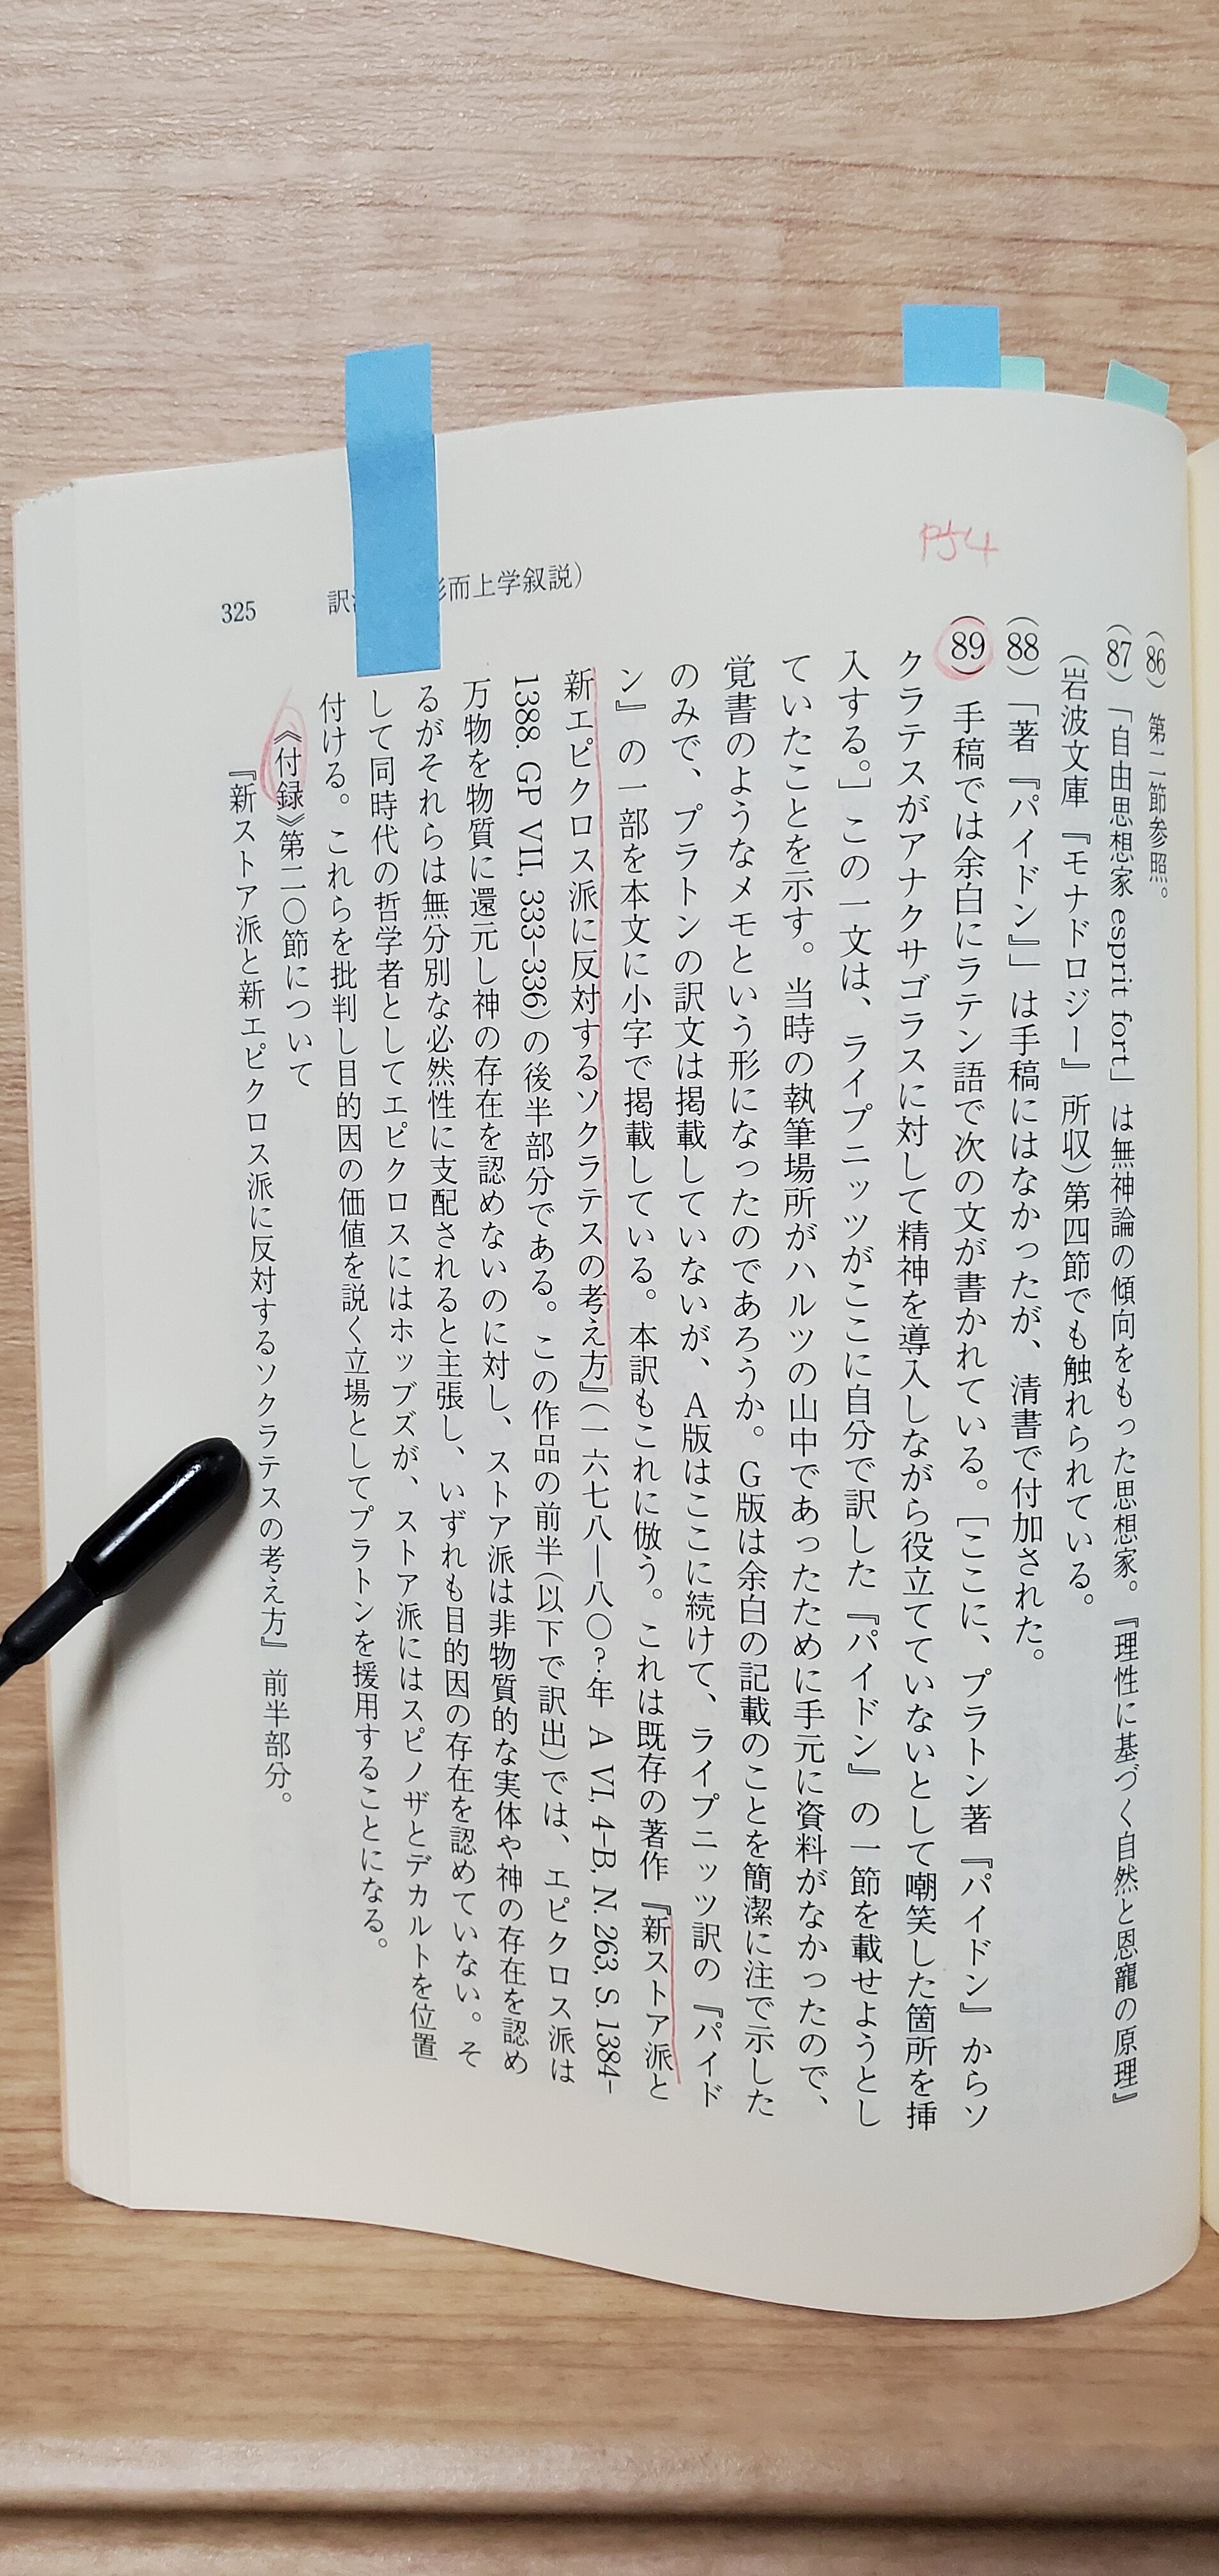 P54
(86) 第二節参照。
(87) 「自由思想家 esprit fort」は無神論の傾向をもった思想家。『理性に基づく自然と恩寵の原理』
(岩波文庫『モナドロジー』所収)第四節でも触れられている。
(88) 「著『パイドン』」は手稿にはなかったが、清書で付加された。
(89) 手稿では余白にラテン語で次の文が書かれている。[ここに、プラトン著『パイドン』からソ
クラテスがアナクサゴラスに対して精神を導入しながら役立てていないとして嘲笑した箇所を挿
入する。]この一文は、ライプニッツがここに自分で訳した『パイドン』の一節を載せようとし
ていたことを示す。当時の執筆場所がハルツの山中であったために手元に資料がなかったので、
覚書のようなメモという形になったのであろうか。G版は余白の記載のことを簡潔に注で示した
のみで、プラトンの訳文は掲載していないが、A版はここに続けて、ライプニッツ訳の『パイド
ン』の一部を本文に小字で掲載している。本訳もこれに倣う。これは既存の著作『新ストア派と
新エピクロス派に反対するソクラテスの考え方』(一六七八―八〇?年 A VI, 4-B, N. 263, S. 1384-
1388. GP VII, 333-336)の後半部分である。この作品の前半(以下で訳出)では、エピクロス派は
万物を物質に還元し神の存在を認めないのに対し、ストア派は非物質的な実体や神の存在を認め
るがそれらは無分別な必然性に支配されると主張し、いずれも目的因の存在を認めていない。そ
して同時代の哲学者としてエピクロスにはホッブズが、ストア派にはスピノザとデカルトを位置
付ける。これらを批判し目的因の価値を説く立場としてプラトンを援用することになる。
《付録》第二〇節について
『新ストア派と新エピクロス派に反対するソクラテスの考え方』前半部分。
訳 形而上学叙説)
325